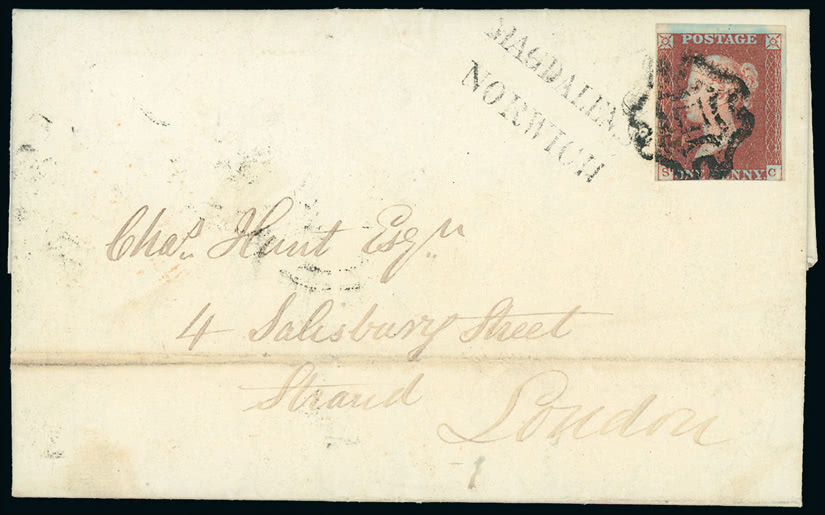 MAGDALEN S
NORWICH
POSTAGE
S ONE PENNY. C
Chas. Hunt Esqr.
4 Salisbury Street
Strand
London